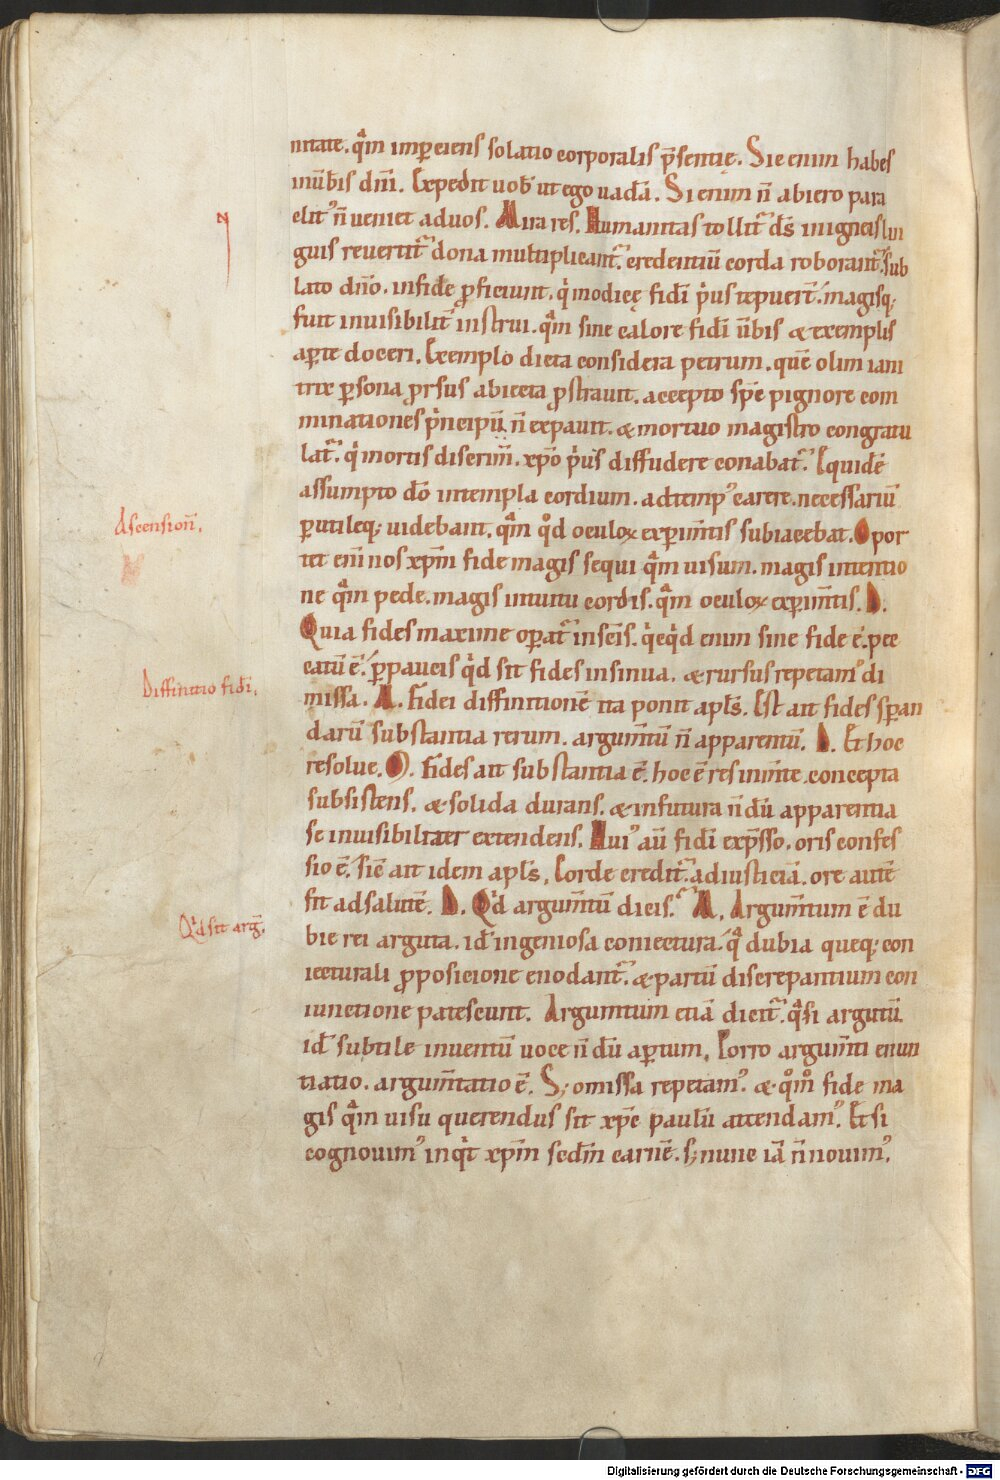 nitate. qͣm imꝑciens solatio corporalis p̄sentię. Sic enim habes
in ūbis dn̄i. Expedit uob̄ ut ego uadā. Si enim n̄ abiero para
clit᾽ n̄ ueniet ad uos. Mira res. Humanitas tollit᷑ ds̄ in igneis lin
guis reuertit᷑ dona multiplicant᷑. credentiū corda roborant᷑. sub
lato dn̄o. in fide ꝓficiunt. qͥ modicę fidei pͥus tepuer̄t. magisq;
fuit inuisibilit᷑ instrui. qͣm sine calore fidei ūbis & exemplis
aꝑte doceri. Exemplo dicta considera petrum. quē olim iani
trix ꝑsona ꝓrsus abiecta ꝓstrauit. accepto sp̄c pignore com
minationes pͥncipū n̄ expauit. & mortuo magistro congratu
lat᷑. qͥ mortis discrim̄. xp̄o pͥus diffudere conabat᷑. Equidē
assumpto dō in templa cordium. ad temp᾽ carere. necessariū
ꝑutileq; uidebant. qͣm qͦd oculoꝝ exꝑim̄tis subiacebat. Opor
tet eni nos xp̄m fide magis sequi qͣm uisum. magis intentio
ne qͣm pede. magis intuitu cordis. qͣm oculoꝝ exꝑim̄tis. D.
Quia fides maxime oꝑat᷑ in sc̄is. qͥcqͥd enim sine fide ē. pec
catū ē. ꝑpaucis qͥd sit fides insinua. & rursus repetam᾽ di
missa. A. Fidei diffinitionē ita ponit apl̄s. Est ait fides sꝑan
darū substantia rerum. argum̄tū n̄ apparentū. D. Et hoc
resolue. Fides ait substantia ē. hoc ē res in m̄te concepta
subsistens. & solida durans. & in futura n̄ dū apparentia
se inuisibiliter extendens. Hui᾽ aū fidi exp̄sso. oris confes
sio ē. sic̄ ait idem apl̄s. Corde credit᷑ ad iusticiā. ore autē
fit ad salutē. D. Qͥd argum̄tū dicis. A. Argum̄tum ē du
bie rei arguta. id ē ingeniosa coniectura. qͣ dubia queq; con
iecturali ꝓposicione enodant᷑. & partiū discrepantium con
iunctione patescunt. Argumtum etiā dicit᷑. qͣsi argutū
id ē subtile inuentū uoce n̄ dū aꝑtum. Porro argum̄ti enun
tiatio. argum̄tatio ē. S; omissa repetam᾽. & qͦmͦ fide ma
gis qͣm uisu querendus sit xp̄c paulū attendam᾽. Et si
cognouim᾽ inqͥt xp̄m sedm̄ carnē. s; nunc iā n̄ nouim᾽.
Ascension̄.
Diffinitio fidi.
Qͥd sit arḡ.
Digitalisierung gefördert durch die Deutsche Forschungsgemeinschaft - DFG